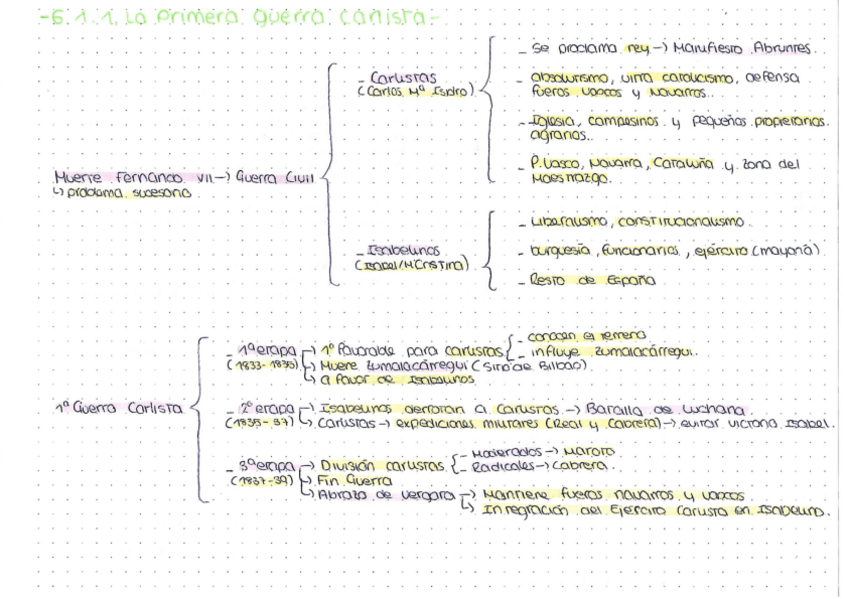 -6.1.1. La primera guerra carlista-
- Se proclama rey → Manifiesto Abrantes.
- Carlistas
(Carlos Mª Isidro)
- absolutismo, ultra catolicismo, defensa
fueros vascos y Navarros.
- Iglesia, campesinos y pequeños propietarios
agrarios.
- P.Vasco, Navarra, Cataluña y zona del
Maestrazgo.
Muerte Fernando VII → Guerra Civil
↳ problema sucesorio
- Isabelinos
(Isabel/MªCristina)
- Liberalismo, constitucionalismo.
- burguesía, funcionarios, ejército (mayoría)
- Resto de España
1ª Guerra Carlista
- 1ª etapa → 1º Favorable para carlistas
(1833-1835)
- conocen el terreno
- influye Zumalacárregui.
→ Muere Zumalacárregui (Sitio de Bilbao)
↳ a favor de Isabelinos
- 2ª etapa → Isabelinos derrotan a Carlistas → Batalla de Luchana.
(1835-37) ↳ Carlistas → expediciones militares (Real y Cabrera) → evitar victoria Isabel.
- 3ª etapa → División carlistas
(1837-39)
- Moderados → Maroto
- Radicales → Cabrera.
→ Fin Guerra
↳ Abrazo de Vergara → Mantiene fueros navarros y vascos
↳ Integración del Ejército Carlista en Isabelino.